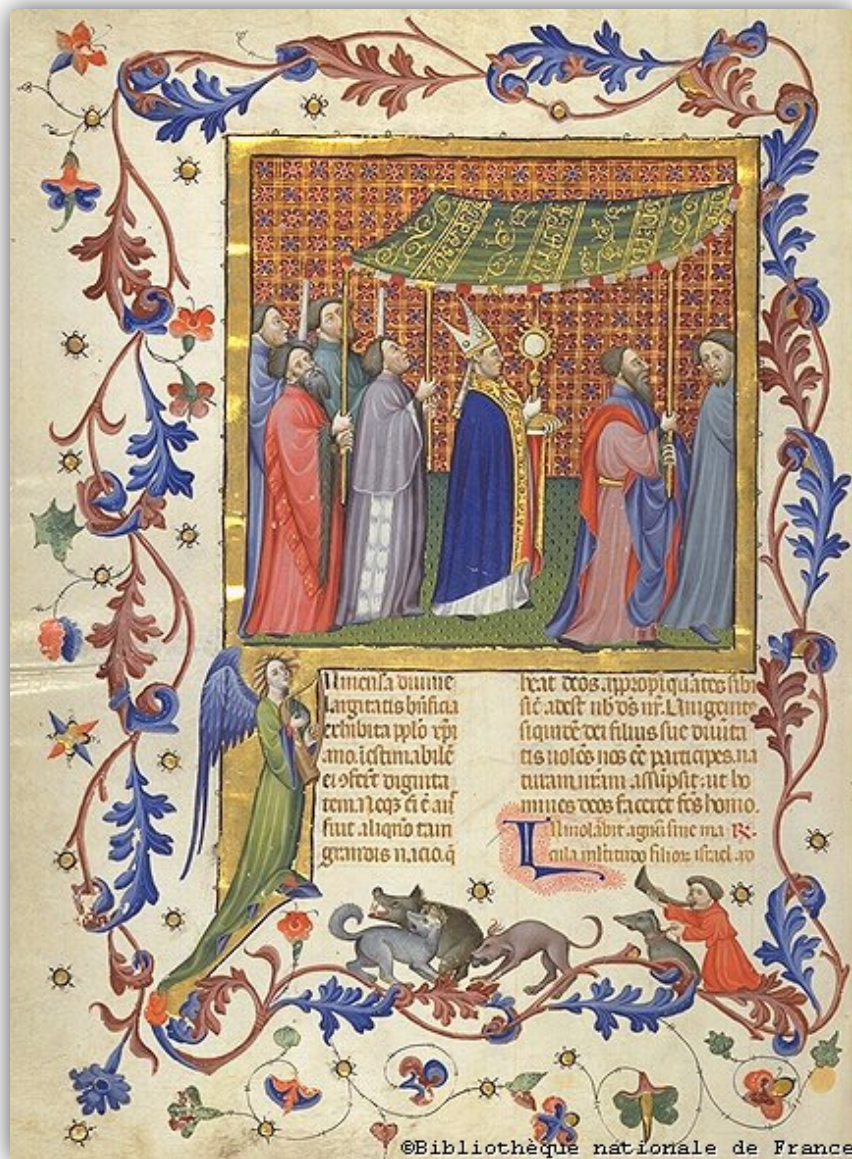 Mmensa divine
largitatis bn̄ficia
exhibita pplo xp̄i
ano. iestimabilē
ei ɔfert dignita
tem. Neqz eī ē aut
fuit aliquo tam
grandis nacio. q̄
beat deos appropiquātes sibi
sic̄ adest nb̄ dš nr̄. Unigenit9
siquidē dei filius sue divinita
tis volēs nos ēē participes. na
turam nrām assūpsit: ut ho
mines deos faceret fc̄s homo.
Inmolabit agnū sine ma R.
cula multitudo filior israel. ad
©Bibliothèque nationale de France